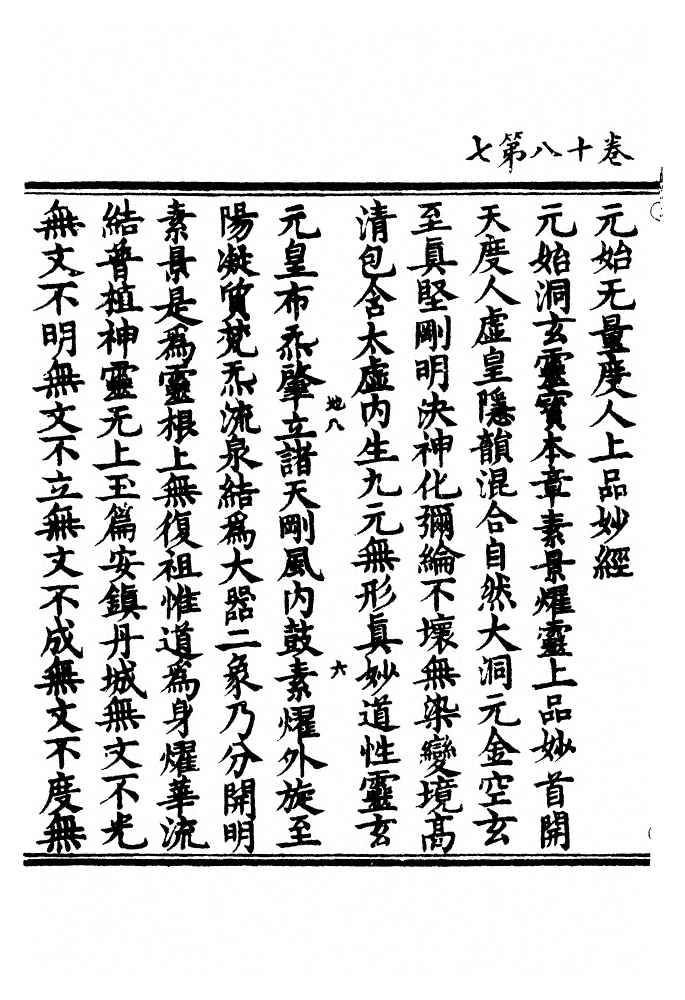 卷十八第七
元始无量度人上品妙經
元始洞玄靈寶本章素景燿靈上品妙首開
天度人虛皇隱韻混合自然大洞元金空玄
至眞堅剛明決神化彌綸不壞無染變境高
清包含太虛內生九元無形眞妙道性靈玄
地八
六
元皇布炁肇立諸天剛風內鼓素燿外旋至
陽凝質梵炁流泉結爲大器二象乃分開明
素景是爲靈根上無復祖惟道爲身燿華流
結普植神靈无上玉篇安鎮丹城無文不光
無文不明無文不立無文不成無文不度無